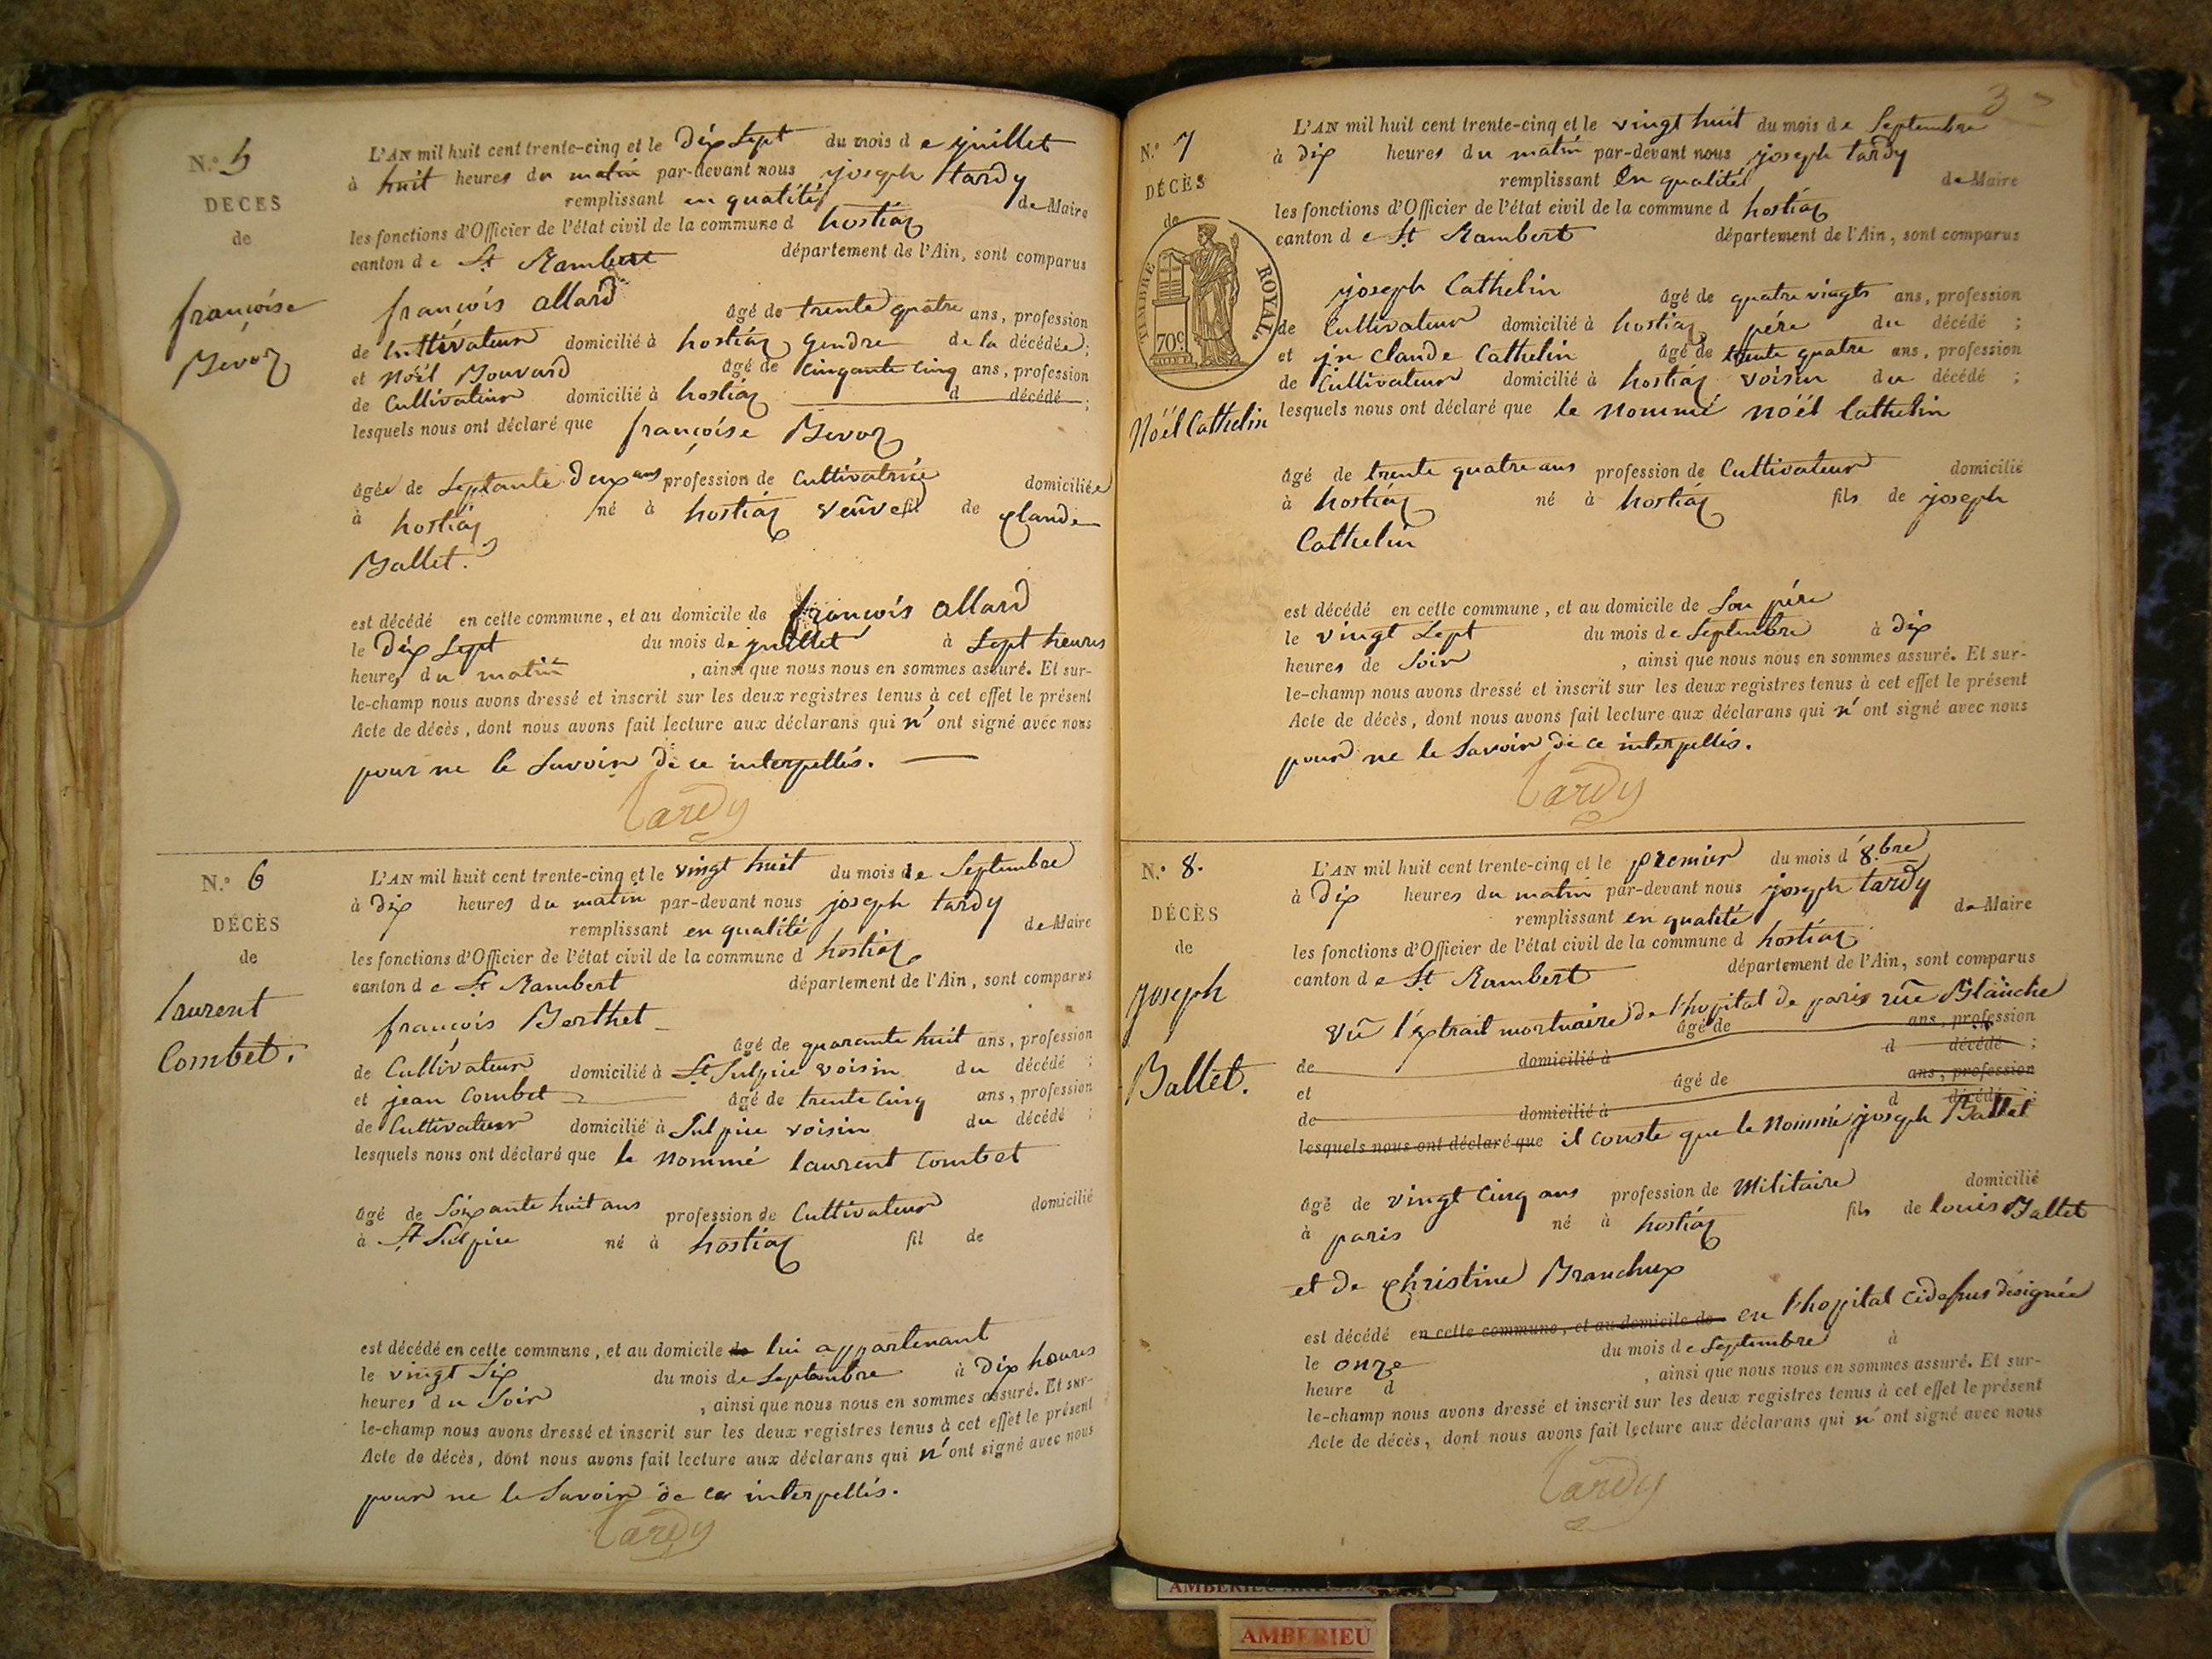 N.° 5
DECES
de
françoise
Bevoz
L'AN mil huit cent trente-cinq et le dix sept du mois de juillet
à huit heures du matin par-devant nous joseph tardy
remplissant en qualité de Maire
les fonctions d'Officier de l'état civil de la commune d hostiaz
canton de St Rambert département de l'Ain, sont comparus
françois allard âgé de trente quatre ans, profession
de Cultivateur domicilié à hostiaz gendre de la décédée;
et Noël Bouvard âgé de cinquante cinq ans, profession
de Cultivateur domicilié à hostiaz d décédé;
lesquels nous ont déclaré que françoise Bevoz
âgée de septante deux ans profession de Cultivatrice domiciliée
à hostiaz né à hostiaz veûve fil de Claude
Ballet.
est décédé en cette commune, et au domicile de françois allard
le dix sept du mois de juillet à sept heures
heures du matin, ainsi que nous nous en sommes assuré. Et sur-
le-champ nous avons dressé et inscrit sur les deux registres tenus à cet effet le présent
Acte de décès, dont nous avons fait lecture aux déclarans qui n'ont signé avec nous
pour ne le savoir de ce interpellés.
Tardy
N.° 6
DÉCÈS
de
laurent
Combet.
L'AN mil huit cent trente-cinq et le vingt huit du mois de Septembre
à dix heures du matin par-devant nous joseph tardy
remplissant en qualité de Maire
les fonctions d'Officier de l'état civil de la commune d hostiaz
canton de St Rambert département de l'Ain, sont comparus
françois Berthet âgé de quarante huit ans, profession
de Cultivateur domicilié à St Sulpice voisin du décédé;
et jean Combet âgé de trente cinq ans, profession
de Cultivateur domicilié à Sulpice voisin du décédé;
lesquels nous ont déclaré que le nommé laurent Combet
âgé de soixante huit ans profession de Cultivateur domicilié
à St Sulpice né à hostiaz fil de
est décédé en cette commune, et au domicile de lui appartenant
le vingt six du mois de Septembre à dix heures
heures du soir, ainsi que nous nous en sommes assuré. Et sur-
le-champ nous avons dressé et inscrit sur les deux registres tenus à cet effet le présent
Acte de décès, dont nous avons fait lecture aux déclarans qui n'ont signé avec nous
pour ne le savoir de ce interpellés.
Tardy
3
N.° 7
DÉCÈS
de
TIMBRE ROYAL.
70c
Noël Cathelin
L'AN mil huit cent trente-cinq et le vingt huit du mois de Septembre
à dix heures du matin par-devant nous joseph tardy
remplissant en qualité de Maire
les fonctions d'Officier de l'état civil de la commune d hostiaz
canton de St Rambert département de l'Ain, sont comparus
joseph Cathelin âgé de quatre vingts ans, profession
de Cultivateur domicilié à hostiaz père du décédé;
et jn Claude Cathelin âgé de trente quatre ans, profession
de Cultivateur domicilié à hostiaz voisin du décédé;
lesquels nous ont déclaré que le nommé noël Cathelin
âgé de trente quatre ans profession de Cultivateur domicilié
à hostiaz né à hostiaz fils de joseph
Cathelin
est décédé en cette commune, et au domicile de son père
le vingt sept du mois de Septembre à dix
heures de soir, ainsi que nous nous en sommes assuré. Et sur-
le-champ nous avons dressé et inscrit sur les deux registres tenus à cet effet le présent
Acte de décès, dont nous avons fait lecture aux déclarans qui n'ont signé avec nous
pour ne le savoir de ce interpellés.
Tardy
N.° 8.
DÉCÈS
de
joseph
Ballet.
L'AN mil huit cent trente-cinq et le premier du mois d 8.bre
à dix heures du matin par-devant nous joseph tardy
remplissant en qualité de Maire
les fonctions d'Officier de l'état civil de la commune d hostiaz
canton de St Rambert département de l'Ain, sont comparus
vû l'extrait mortuaire de l'hopital de paris rûe Blanche
âgé de ans, profession
de domicilié à d décédé;
et âgé de ans, profession
de domicilié à d décédé;
lesquels nous ont déclaré que il conste que le nommé joseph Ballet
âgé de vingt cinq ans profession de Militaire domicilié
à paris né à hostiaz fils de louis Ballet
et de Christine Branchux
est décédé en cette commune, et au domicile de en l'hopital cidessus désignée
le onze du mois de Septembre à
heure d, ainsi que nous nous en sommes assuré. Et sur-
le-champ nous avons dressé et inscrit sur les deux registres tenus à cet effet le présent
Acte de décès, dont nous avons fait lecture aux déclarans qui n'ont signé avec nous
Tardy
AMBERIEU